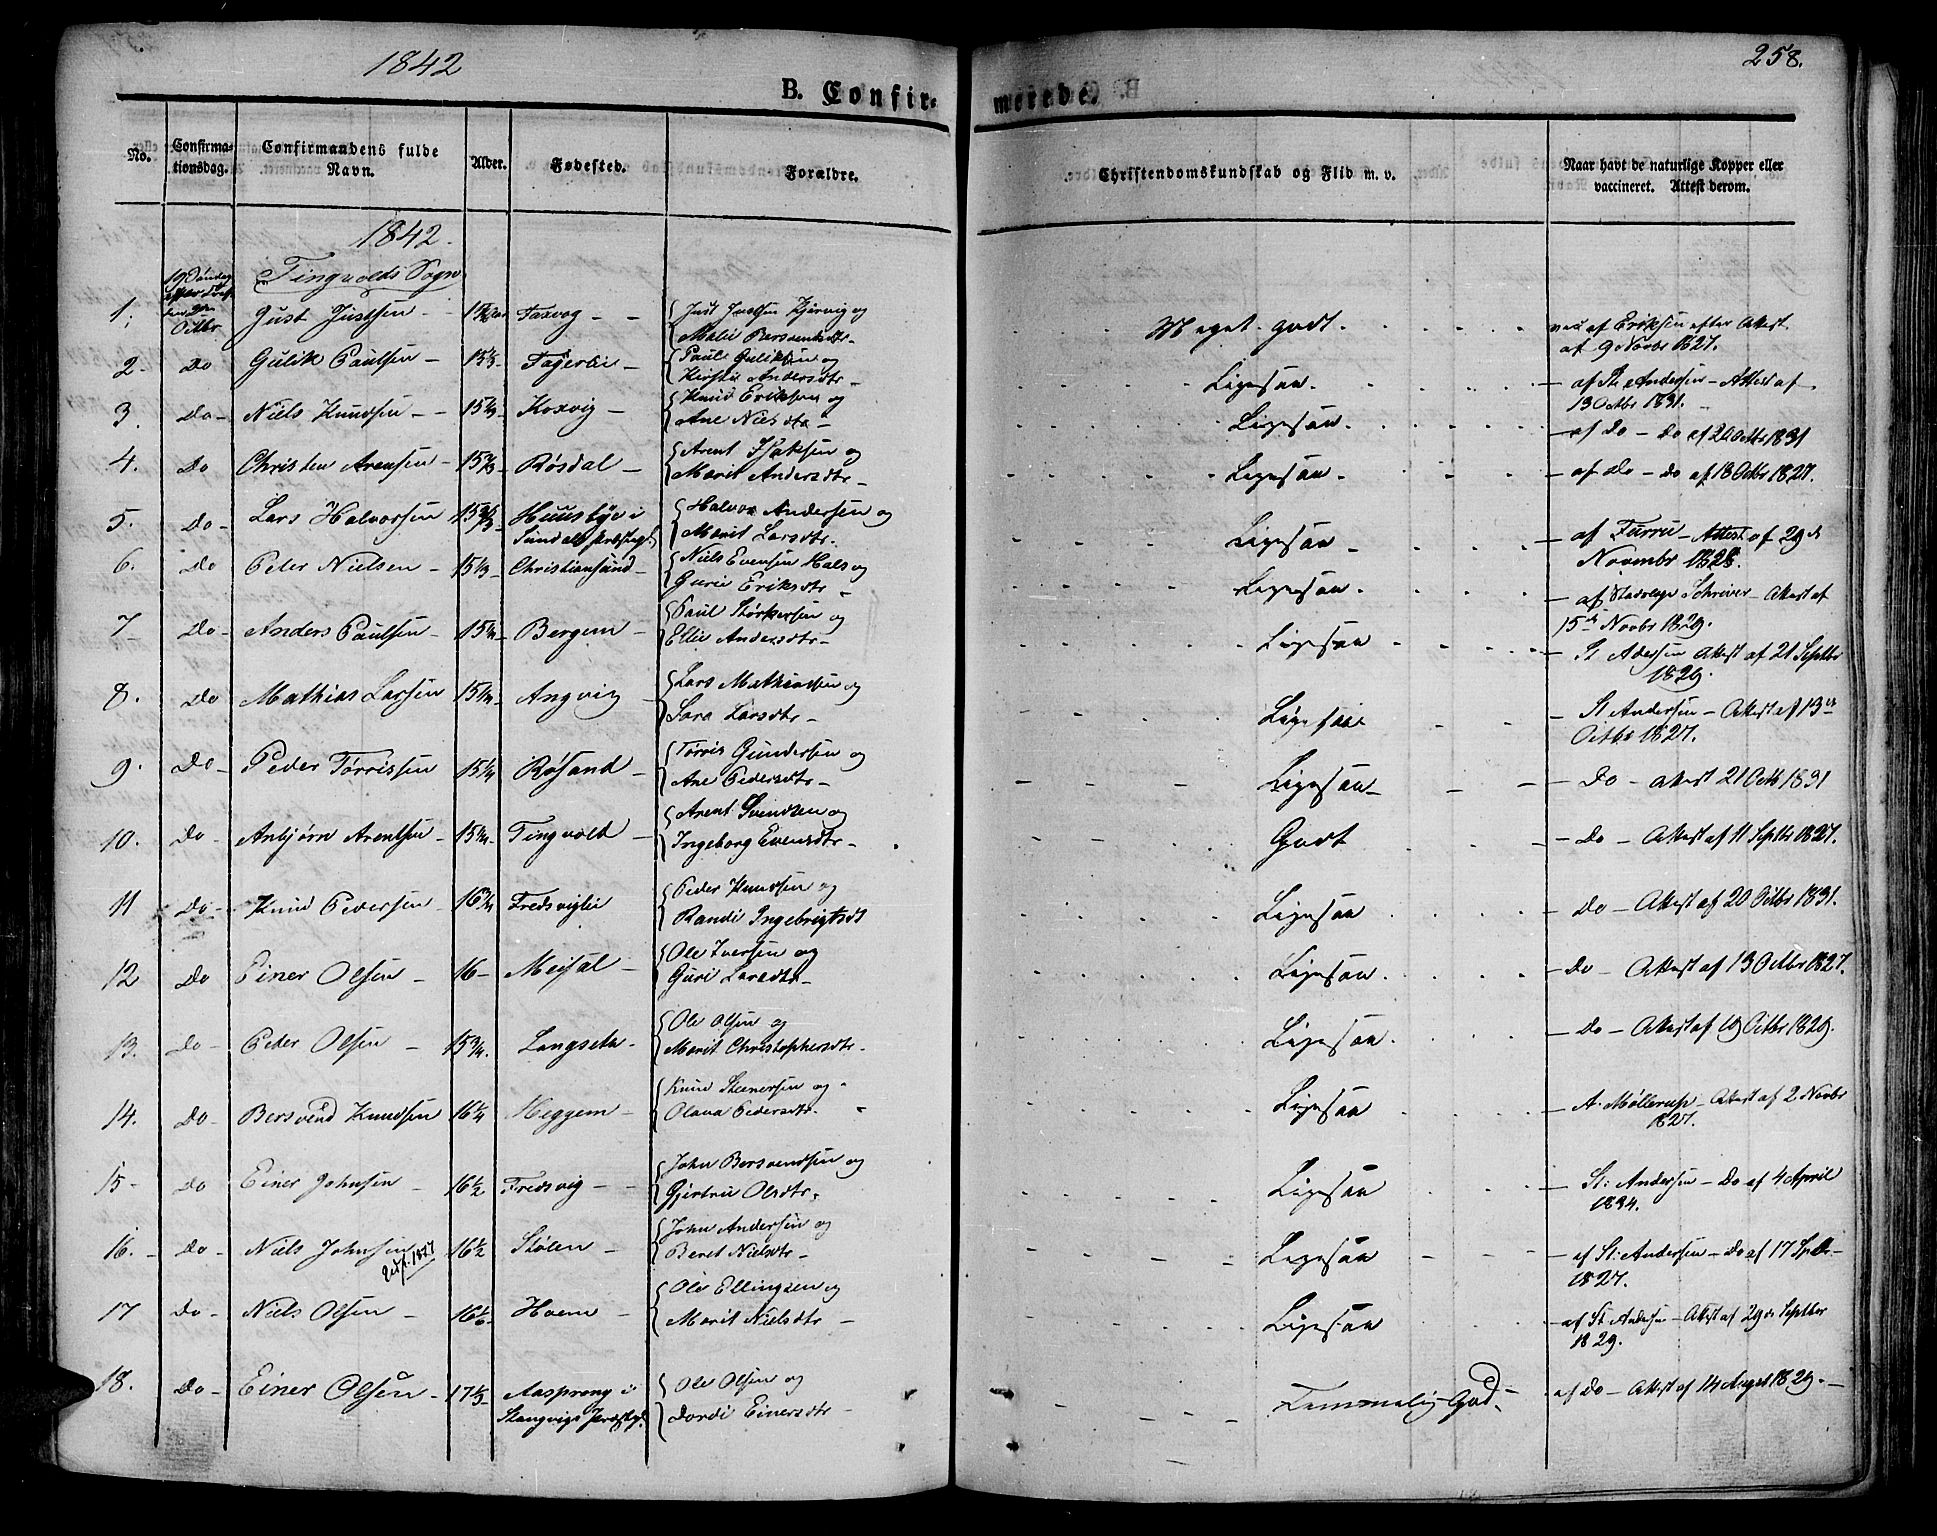 1842
258.
B. Confir-
merede.
No.
Confirma-
tionsdag.
Confirmandens fulde
Navn.
Alder.
Fødested.
Forældre.
Christendomskundskab og Flid m. v.
Naar havt de naturlige Kopper eller
vaccineret. Attest derom.
1842.
Tingvolds Sogn
19 Søndag
efter
Octbr
1. Just Justsen - Saxvog - - Just Justsen Kjørvig og
Malie Bersvendsdtr -
Meget godt. vac af Eriksen efter Attest
af 9 Novbr 1827.
2. Do Gulik Paulsen - 15 1/3 Fagerlie - Paul Guliksen og
Kirstie Andersdtr -
Ligesaa. - af St. Andersen - Attest af
13 Octbr 1831.
3. Do - Niels Knudsen - - 15 1/3 Koxvig - Knud Eriksen og
Ane Nielsdtr -
Ligesaa. - af Do - Do af 20 Octbr 1831
4. Do Christen Arentsen - 15 Røsdal - Arent Isaksen og
Marit Andersdtr -
Ligesaa - - af Do - Do af 18 Octbr 1827.
5. Do - Lars Halvorsen 15 Huusbye i
Sundals Præstegj. Halvor Andersen og
Marit Larsdtr.
Ligesaa - - af Furru - Attest af 29 de
Novembr 1828.
6. Do Peter Nielsen - 15 1/3 Christiansund - Niels Evensen Hals og
Gurie Eriksdtr -
Ligesaa - - af Schreiver - Attest af
15 de Novbr 1829.
7 Do - Anders Paulsen - 15 Bergem - Paul Størkersen og
Ellie Andersdtr -
Ligesaa - St Andersen Attest af 21 Septbr
1829.
8. Do Mathias Larsen 15 Angvig - Lars Mathiassen og
Sara Larsdtr -
Ligesaa - St Andersen - Attest af 13 de
Octbr 1827.
9. Do - Peder Tørrissen 15 1/4 Røsand - Tørris Gundersen og
Ane Pedersdtr -
Ligesaa - - Do - Attest 21 Octb 1831
10. Do - Anbjørn Arentsen - 15 Tingvold - Arent Svendsen og
Ingeborg Evensdtr -
Godt - Do - Attest af 11 Septbr 1827.
11 Do - Knud Pedersen - 16 Fredsviglie Peder Knudsen og
Randi Ingebrigtsdt
Ligesaa - Do - Attest af 20 Octbr 1831.
12 Do Einer Olsen - 16 - Meisal - Ole Iversen og
Guri Larsdtr -
Ligesaa - Do - Attest af 13 Octbr 1827.
13. Do - Peder Olsen - 15 3/4. Langseth - Ole Olsen og
Marit Christophersdtr -
Ligesaa. - Do - Attest af 19 Octbr 1829.
14. Do - Bersvend Knudsen 16 1/4 Heggem - Knud Steenersen og
Olava Pedersdtr. -
Ligesaa - A. Møllerup - Attest af 2 Novbr
1827.
15 - Do Einer Johnsen - 16 1/2 Fredsvig - - John Bersvendsen og
Gjertrue Olsdtr.
Ligesaa - St: Andersen - Do af 4 April
1834.
16. - Do - Niels Johnsen 16 1/2 Stølen - John Andersen og
Beret Nielsdtr -
Ligesaa - af St: Andersen - Do af 17 Septbr -
1827.
17 Do - Niels Olsen - 16 1/6 - Hoem - Ole Ellingsen og
Marit Nielsdtr -
Ligesaa - af St Andersen - Attest af 29 de Septbr
1829.
18. Do - Einer Olsen - 17 1/3 Aasprong i
Stangvigs Præstegj. Ole Olsen og
Dordi Einersdtr -
Temmelig God - af Do - Attest af 14 August 1829. -